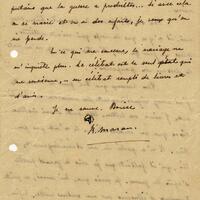 putains que la guerre a produites... si avec cela
on se marie et on a des enfants, je veux qu'on
me pende.
En ce qui me concerne, le mariage ne
m'inquiète plus. Le célibat est le seul qui
me convienne, un célibat rempli de livres et
d'amis.
Je me sauve.
R. Maran.